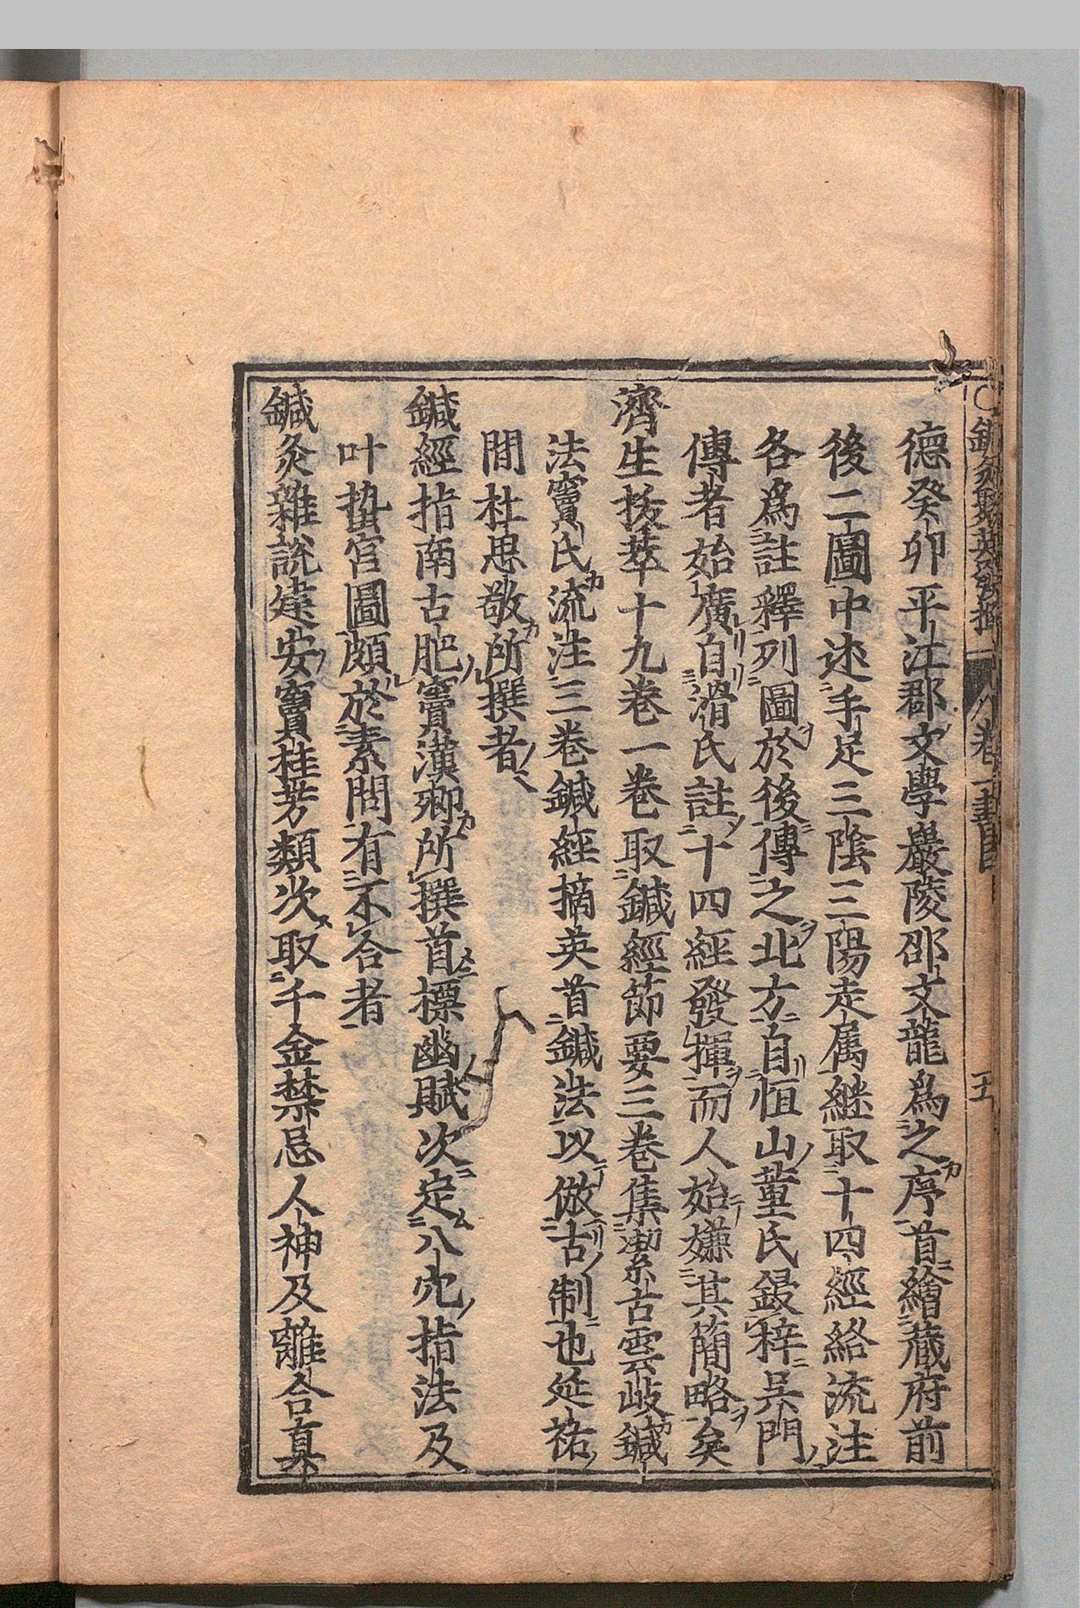 德癸卯平江郡文學嚴陵邵文龍爲之序首繪藏府前
後二圖中述手足三陰三陽走属継取十四經絡流注
各爲註釋列圖於後傳之北方自恒山董氏鋟梓吴門
傳者始廣自滑氏註十四經發揮而人始嫌其簡略矣
濟生拔萃十九卷一卷取鍼經節要三卷集潔古雲岐鍼
法竇氏流注三卷鍼經摘英首鍼法以倣古制也延祐
間杜思敬所撰者
鍼經指南古肥竇漢卿所撰首標幽賦次定八穴指法及
叶蟄宫圖頗於素問有不合者
鍼灸雜説建安竇桂芳類次取千金禁忌人神及離合真